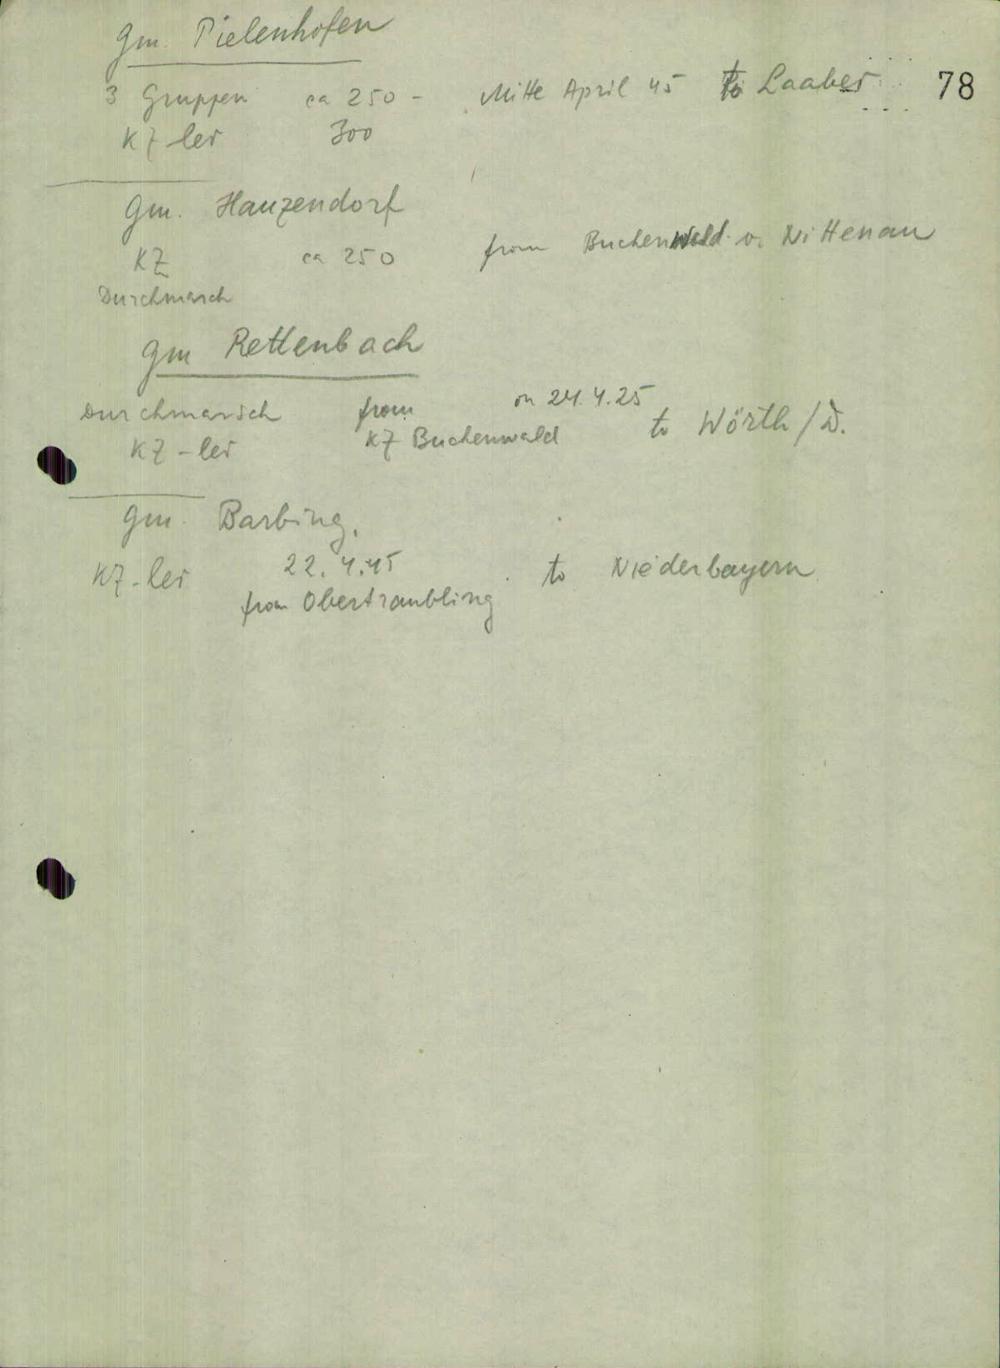 Gm. Pielenhofen
3 Gruppen ca 250 - Mitte April 45 to Laaber 78
KZ-ler 300
Gm. Hauzendorf
KZ ca 250 from Buchenwald v. Nittenau
Durchmarsch
Gm Rettenbach
Durchmarsch from on 24.4.25 to Wörth/D.
KZ-ler KZ Buchenwald
Gm. Barbing.
KZ-ler 22.4.45 to Niederbayern
from Obertraubling